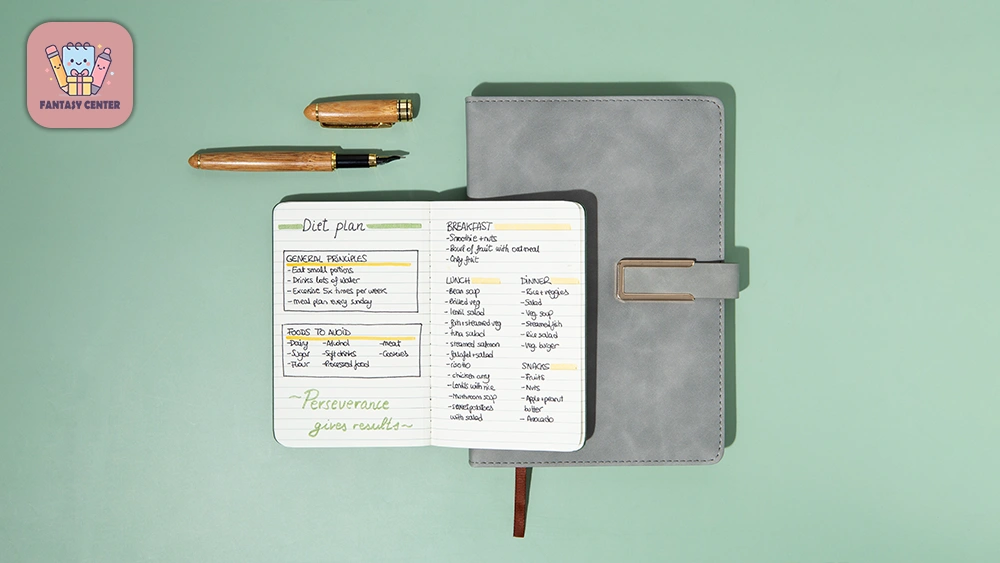 FANTASY CENTER
Diet plan
GENERAL PRINCIPLES
- Eat small potions
- Drinks lots of water
- Excersise 5x times per week
- meal plan every sunday
FOODS TO AVOID
- Dairy - Alcohol - meat
- Sugar - Soft drinks - Cookies
- Flour - Processed food
~Perseverance
gives results~
BREAKFAST
- Smoothie + nuts
- Bowl of fruit with oatmeal
- Only fruit
LUNCH
- Bean soup
- Grilled veg
- lentil salad
- fish + steamed veg
- tuna salad
- steamed salmon
- falafel + salad
- risotto
- chicken curry
- Lentils with rice
- Mushroom soup
- sweet potatoes
with salad
DINNER
- Rice + veggies
- Salad
- Veg. soup
- Steamed fish
- Rice salad
- Veg. burger
SNACKS
- Fruits
- Nuts
- Apple + peanut
butter
- Avocado